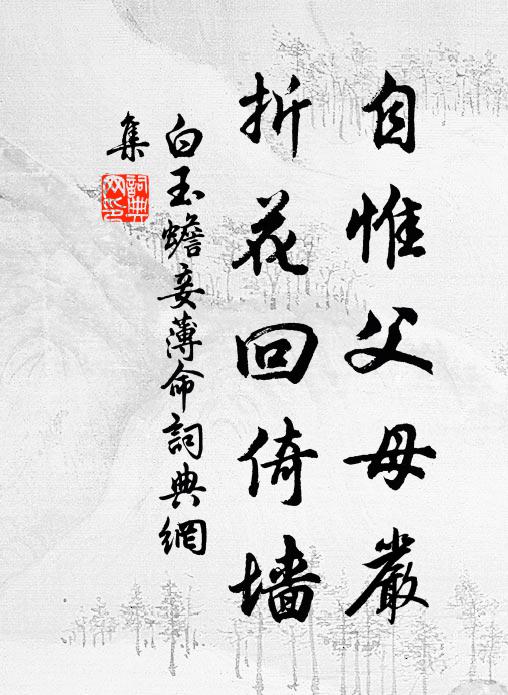 自惟父母嚴
折花回倚墻
白玉蟾妾薄命詞典網
集
詞典网印